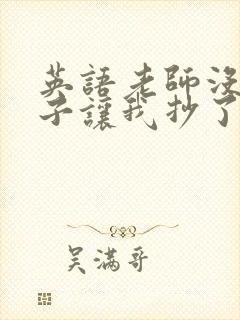 英語老師沒
子讓我抄了
吴满哥